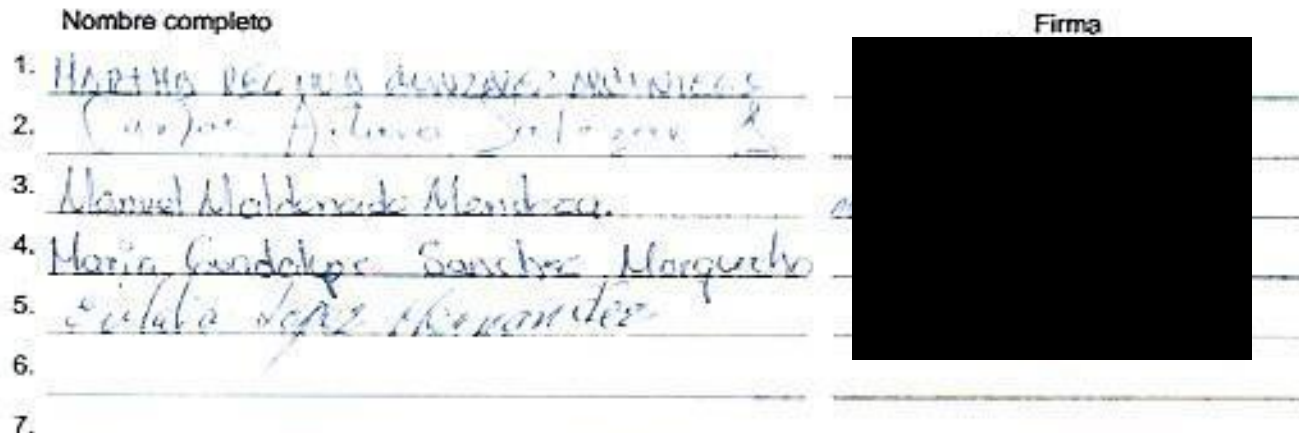 Nombre completo Firma
1. MARTHA
2. Carlos Arturo Salazar
3. Manuel Maldonado Mendoza.
4. Maria Guadalupe Sanchez Morquecho
5. Eulalia Lopez Hernandez
6.
7.